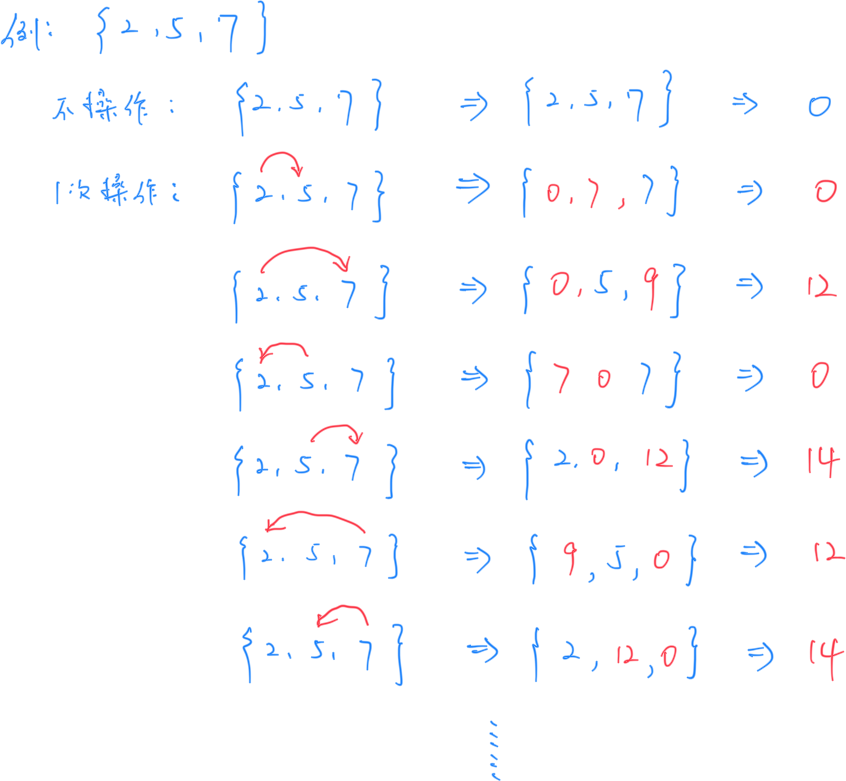 例: {2,5,7}
不操作: {2.5.7} => {2,5,7} => 0
1次操作: {2.5.7} => {0,7,7} => 0
{2.5.7} => {0,5,9} => 12
{2,5,7} => {7 0 7} => 0
{2,5,7} => {2.0,12} => 14
{2.5,7} => {9,5,0} => 12
{2,5,7} => {2,12,0} => 14